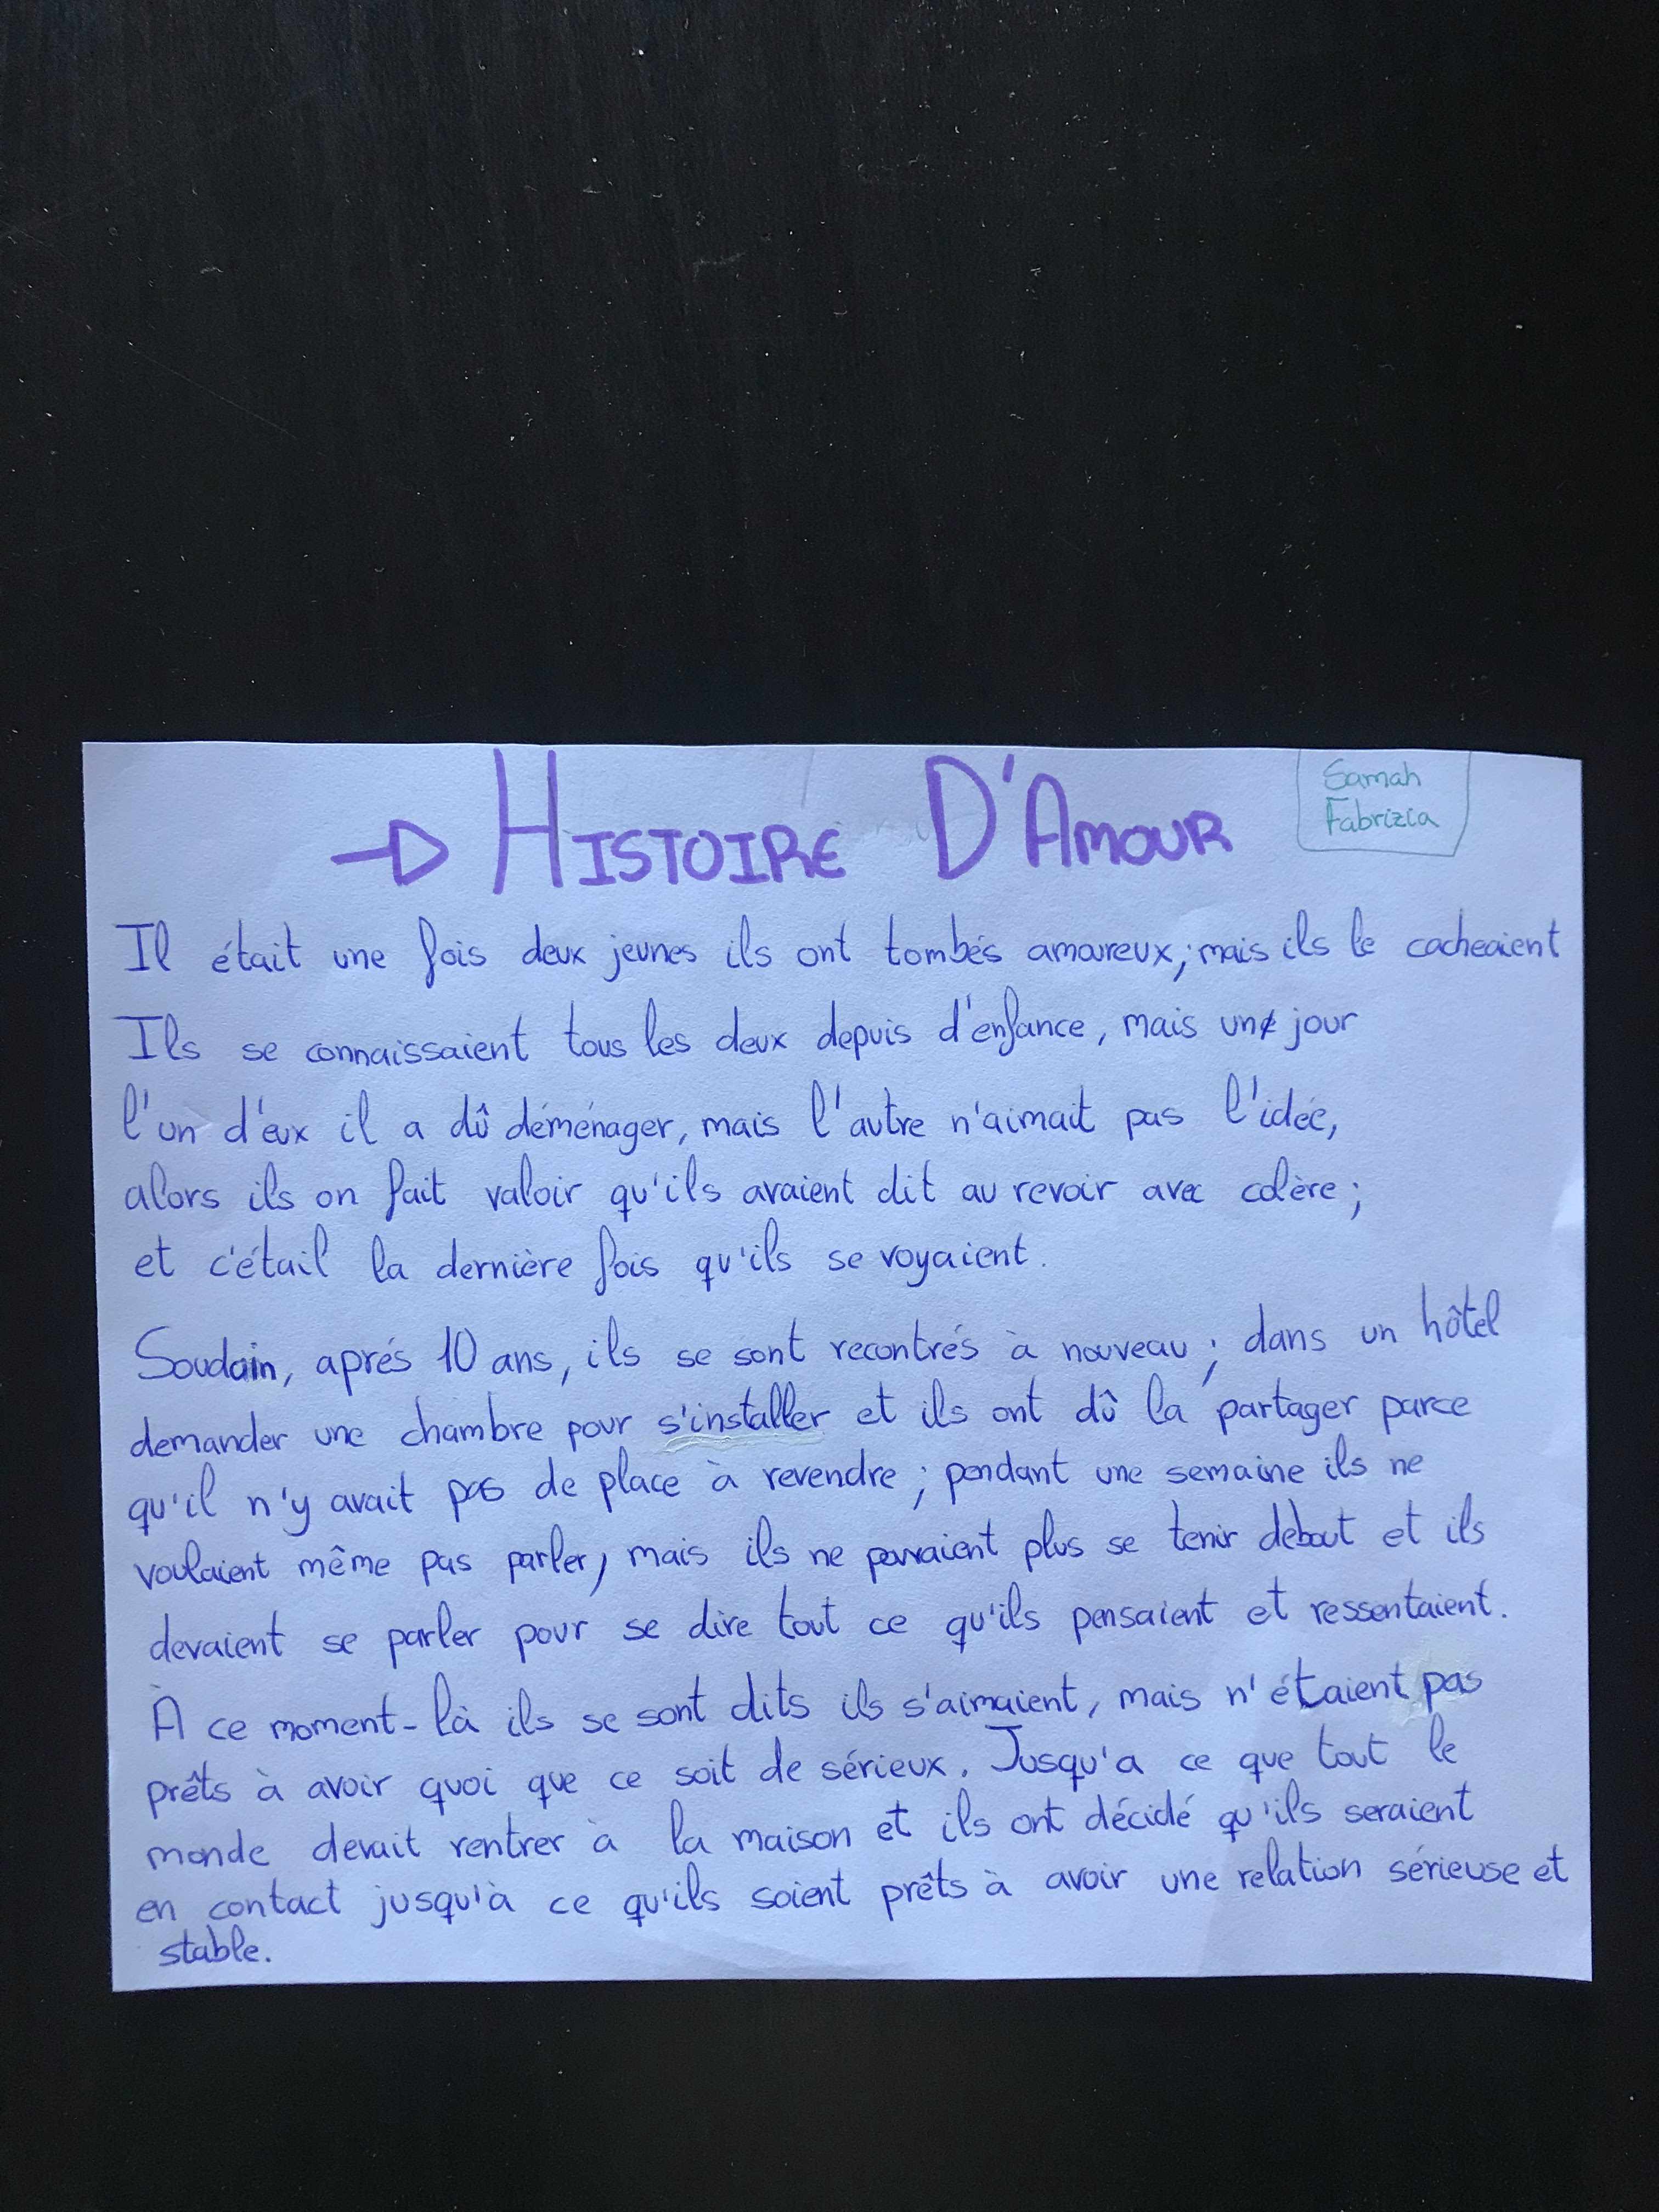 → HISTOIRE D'AMOUR
Samah
Fabrizia
Il était une fois deux jeunes ils ont tombés amoureux; mais ils le cacheaient
Ils se connaissaient tous les deux depuis d'enfance, mais un jour
l'un d'eux il a dû déménager, mais l'autre n'aimait pas l'idée,
alors ils on fait valoir qu'ils avaient dit au revoir avec colère;
et c'étail la dernière fois qu'ils se voyaient.
Soudain, aprés 10 ans, ils se sont recontrés à nouveau; dans un hôtel
demander une chambre pour s'installer et ils ont dû la partager parce
qu'il n'y avait pas de place à revendre; pendant une semaine ils ne
voulaient même pas parler, mais ils ne pouvaient plus se tenir debout et ils
devaient se parler pour se dire tout ce qu'ils pensaient et ressentaient.
À ce moment-là ils se sont dits ils s'aimaient, mais n'étaient pas
prêts à avoir quoi que ce soit de sérieux. Jusqu'a ce que tout le
monde devait rentrer à la maison et ils ont décidé qu'ils seraient
en contact jusqu'à ce qu'ils soient prêts à avoir une relation sérieuse et
stable.